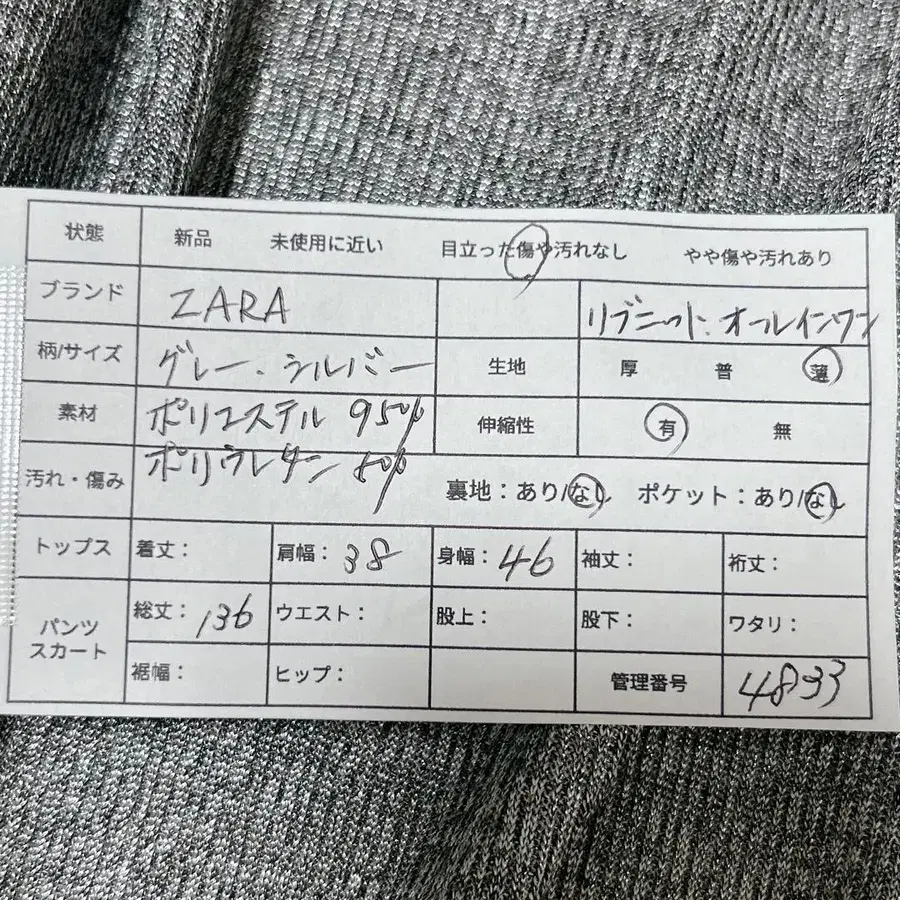 状態 新品 未使用に近い 目立った傷や汚れなし やや傷や汚れあり
ブランド ZARA リブニット.オールインワン
柄/サイズ グレー.シルバー 生地 厚 普 薄
素材 ポリエステル 95% 伸縮性 有 無
ポリウレタン 5%
汚れ・傷み 裏地:あり/なし ポケット:あり/なし
トップス 着丈: 肩幅: 38 身幅: 46 袖丈: 裄丈:
パンツ スカート 総丈: 136 ウエスト: 股上: 股下: ワタリ:
裾幅: ヒップ: 管理番号 4833